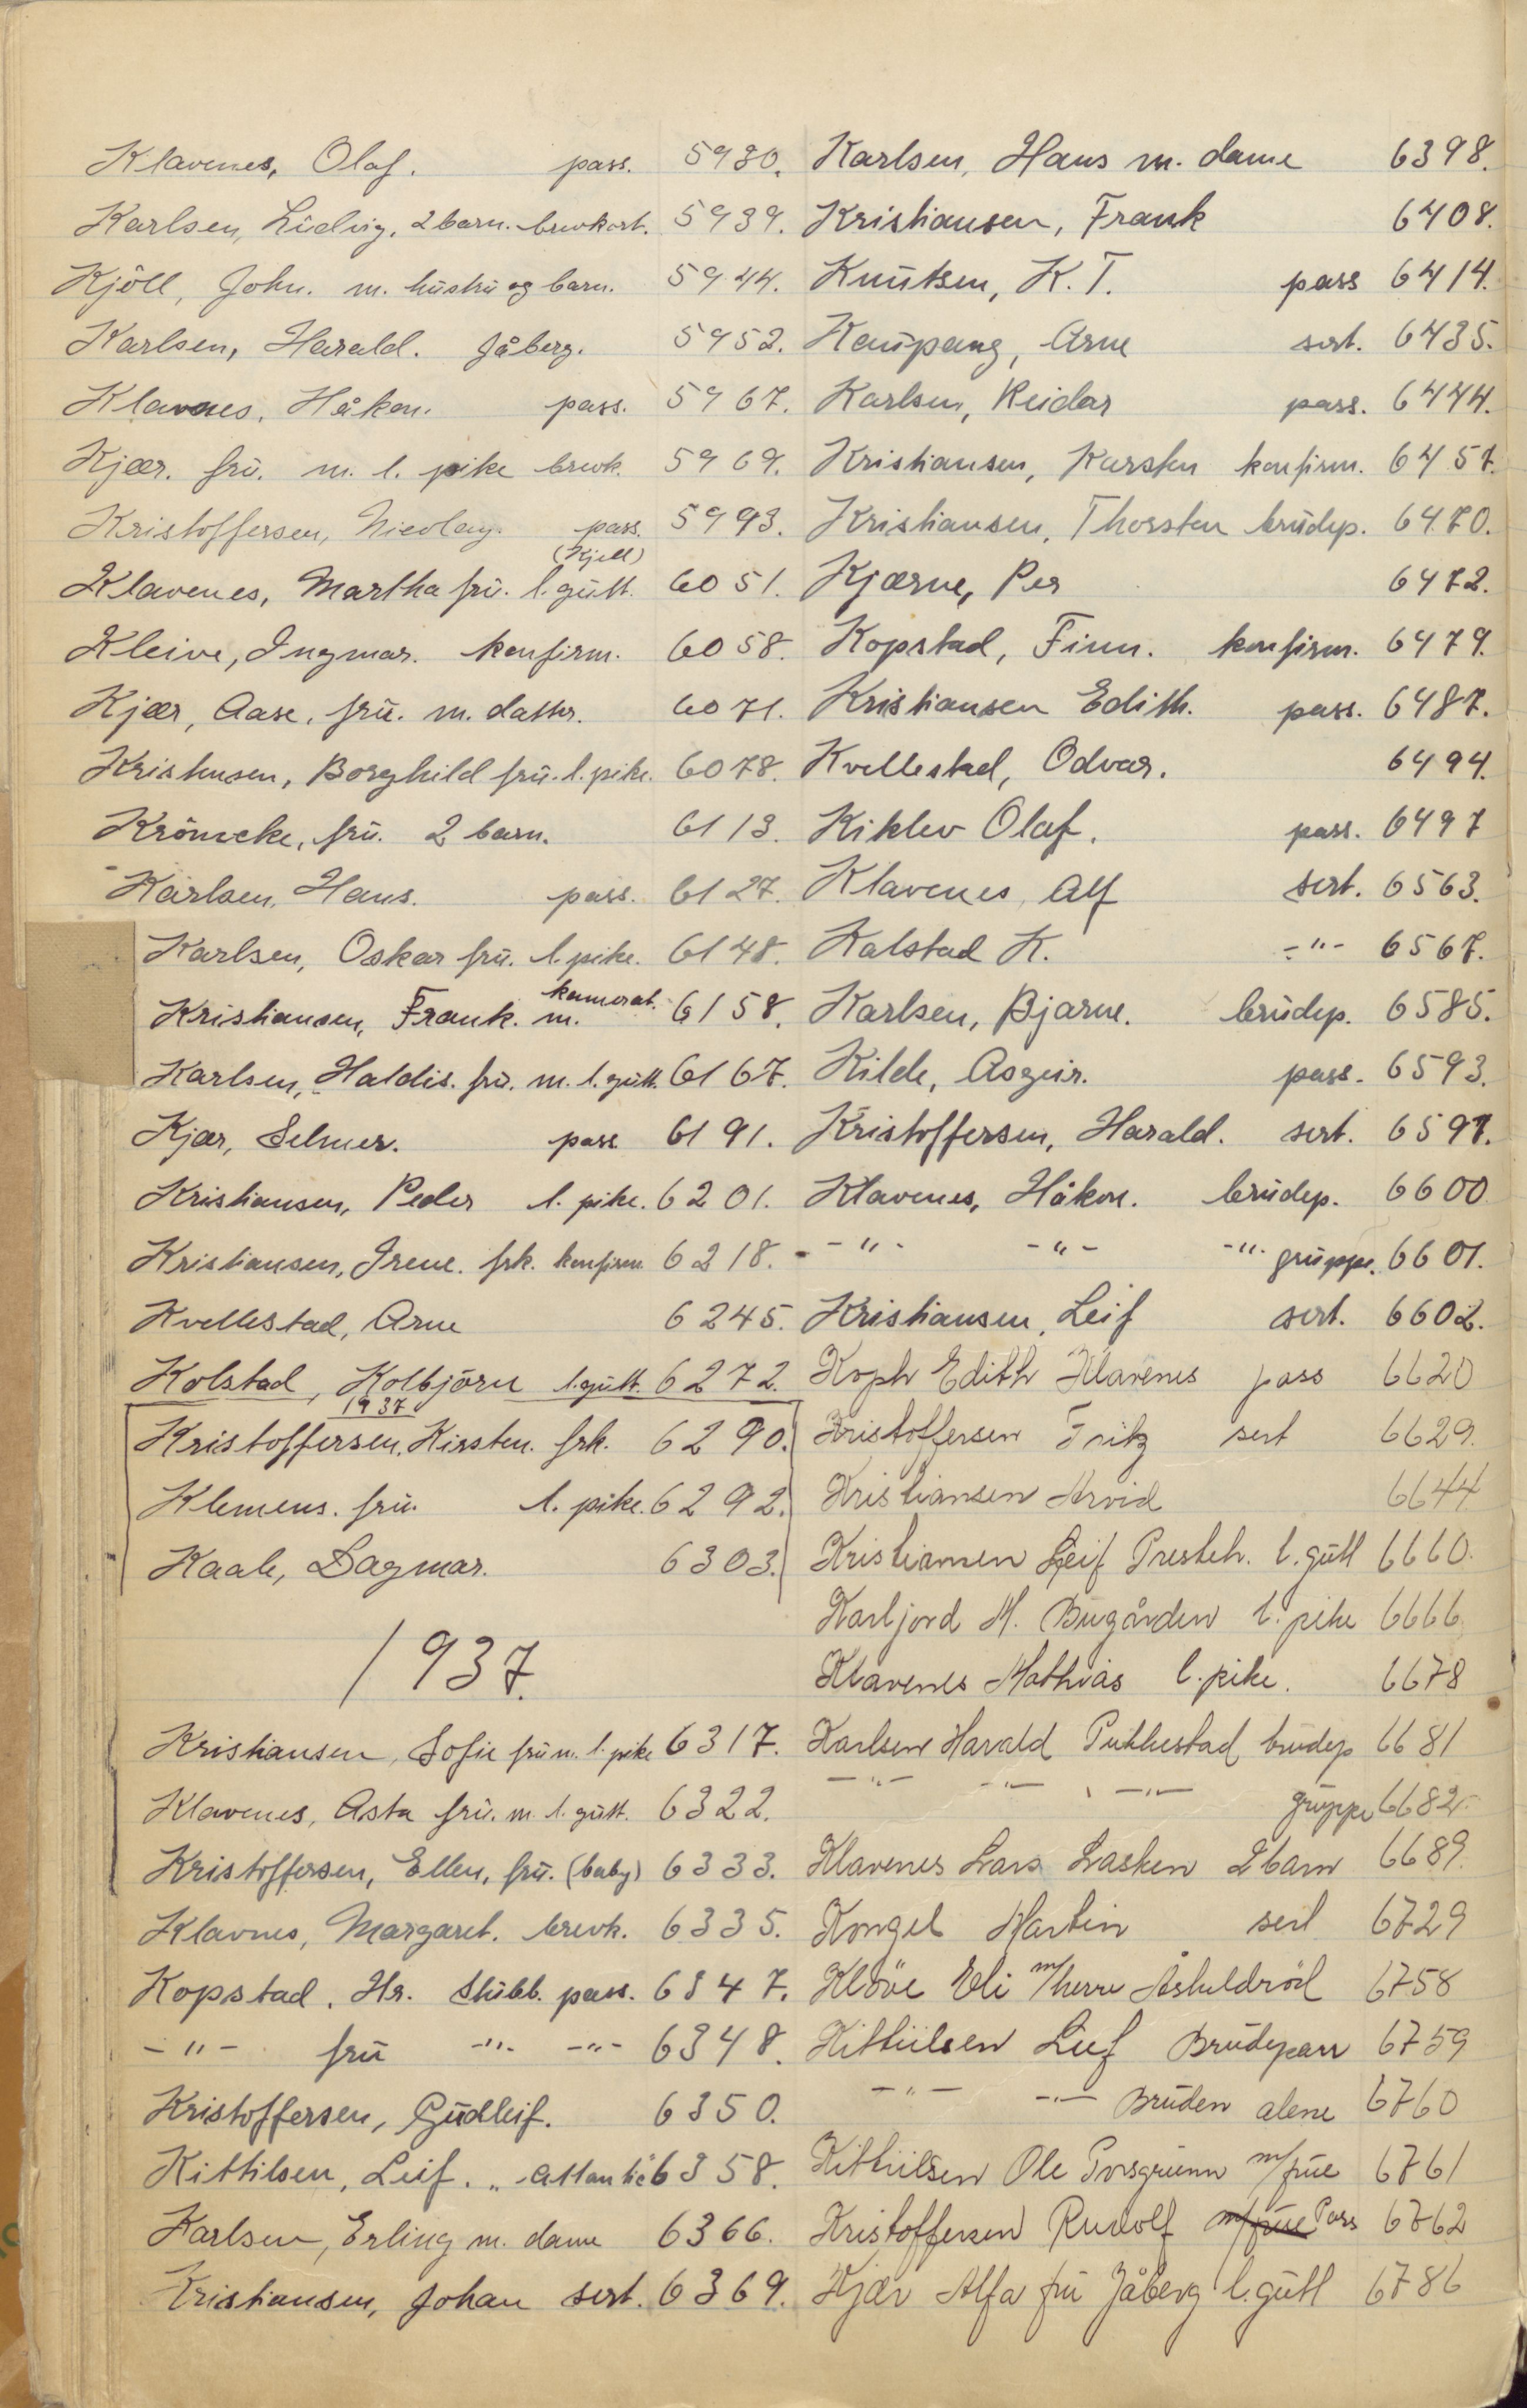 Klavenes, Olaf. pass. 5930.
Karlsen, Ludvig. 2 barn. brevkort. 5939.
Kjöll, John. m. hustru og barn. 5944.
Karlsen, Harald. Jåberg. 5952.
Klavnes, Håkon. pass. 5967.
Kjær. frü. m. l. pike brevk. 5969.
Kristoffersen, Nicolay. pass. 5993.
(Kjell)
Klavenes, Martha frü. l. gütt. 6051.
Kleive, Ingmar. konfirm. 6058.
Kjær, Aase, frü. m. datter. 6071.
Kristensen, Borghild frü. l. pike. 6078.
Kröncke, frü. 2 barn. 6113.
Karlsen, Hans. pass. 6127.
Karlsen, Oskar frü. l. pike. 6148.
Kristiansen, Frank. m. kamerat. 6158.
Karlsen, Haldis. frü. m. l. gütt. 6167.
Kjær, Selmer. pass 6191.
Kristiansen, Peder l. pike. 6201.
Kristiansen, Irene. frk. konfirm 6218.
Kvellestad, Arne 6245.
Kolstad, Kolbjörn l. gütt. 6272.
1937
Kristoffersen, Kirsten. frk. 6290.
Klemens. frü. l. pike. 6292.
Kaale, Dagmar. 6303.
1937.
Kristiansen, Sofie frü m. l. pike 6317.
Klavenes, Asta frü. m. l. gütt. 6322.
Kristoffersen, Ellen, frü. (baby) 6333.
Klavnes, Margaret. brevk. 6335.
Kopstad. Hr. Stubb. pass. 6347.
-"- frü -"- -"- 6348.
Kristoffersen, Güdleif. 6350.
Kittilsen, Leif. „Atlantic" 6358.
Karlsen, Erling m. dame 6366.
Kristiansen, Johan sert. 6369.
Karlsen, Hans m. dame 6398.
Kristiansen, Frank 6408.
Knütsen, K. T. pass 6414.
Kaupang, Arne sert. 6435.
Karlsen, Reidar pass. 6444.
Kristiansen, Karsten konfirm. 6457.
Kristiansen, Thorsten brüdep. 6470.
Kjærne, Per 6472.
Kopstad, Finn. konfirm. 6479.
Kristiansen Edith. pass. 6487.
Kvellestad, Odvar. 6494.
Kiklev Olaf. pass. 6497
Klavenes, Alf sert. 6563.
Kalstad K. -"- 6567.
Karlsen, Bjarne. brüdep. 6585.
Kilde, Asgeir. pass. 6593.
Kristoffersen, Harald. sert. 6597.
Klavenes, Håkon. brüdep. 6600
-"- -"- -"- grüppe. 6601.
Kristiansen, Leif sert. 6602.
Koph Edith Klavenes pass 6620
Kristoffersen Fritz sert 6629.
Kristiansen Arvid 6644
Kristiansen Leif Presteh. l. gütt 6660.
Karljord M. Bügården l. pike 6666
Klavenes Mathias l. pike. 6678
Karlsen Harald Pukkestad brüdep 6681
-"- -"- -"- grüppe 6682
Klavenes Lars Lasken 2 barn 6689.
Kongel Martin sert 6729
Klöve Eli m/herre 6758
Kittilsen Leif Brüdepar 6759
-"- -"- Brüden alene 6760
Kittilsen Ole Porsgrünn m/früe 6761
Kristoffersen Rudolf m/früe Pass 6762
Kjær Alfa frü Jåberg l. gütt 6786